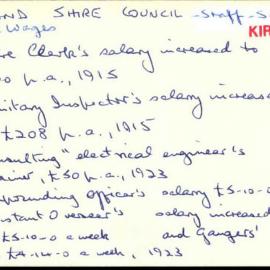 AND SHIRE COUNCIL - Staff - S
Wages
KIR
re Clerk's salary increased to
0 p.a., 1915
nitary Inspector's salary increase
£208 p.a., 1915
nsulting" electrical engineer's
ainer, £50 p.a., 1923
mpounding Officer's salary £5-10-
istant Overseer's salary increased
£5-10-0 a week and Gangers'
£4-14-0 a week, 1923